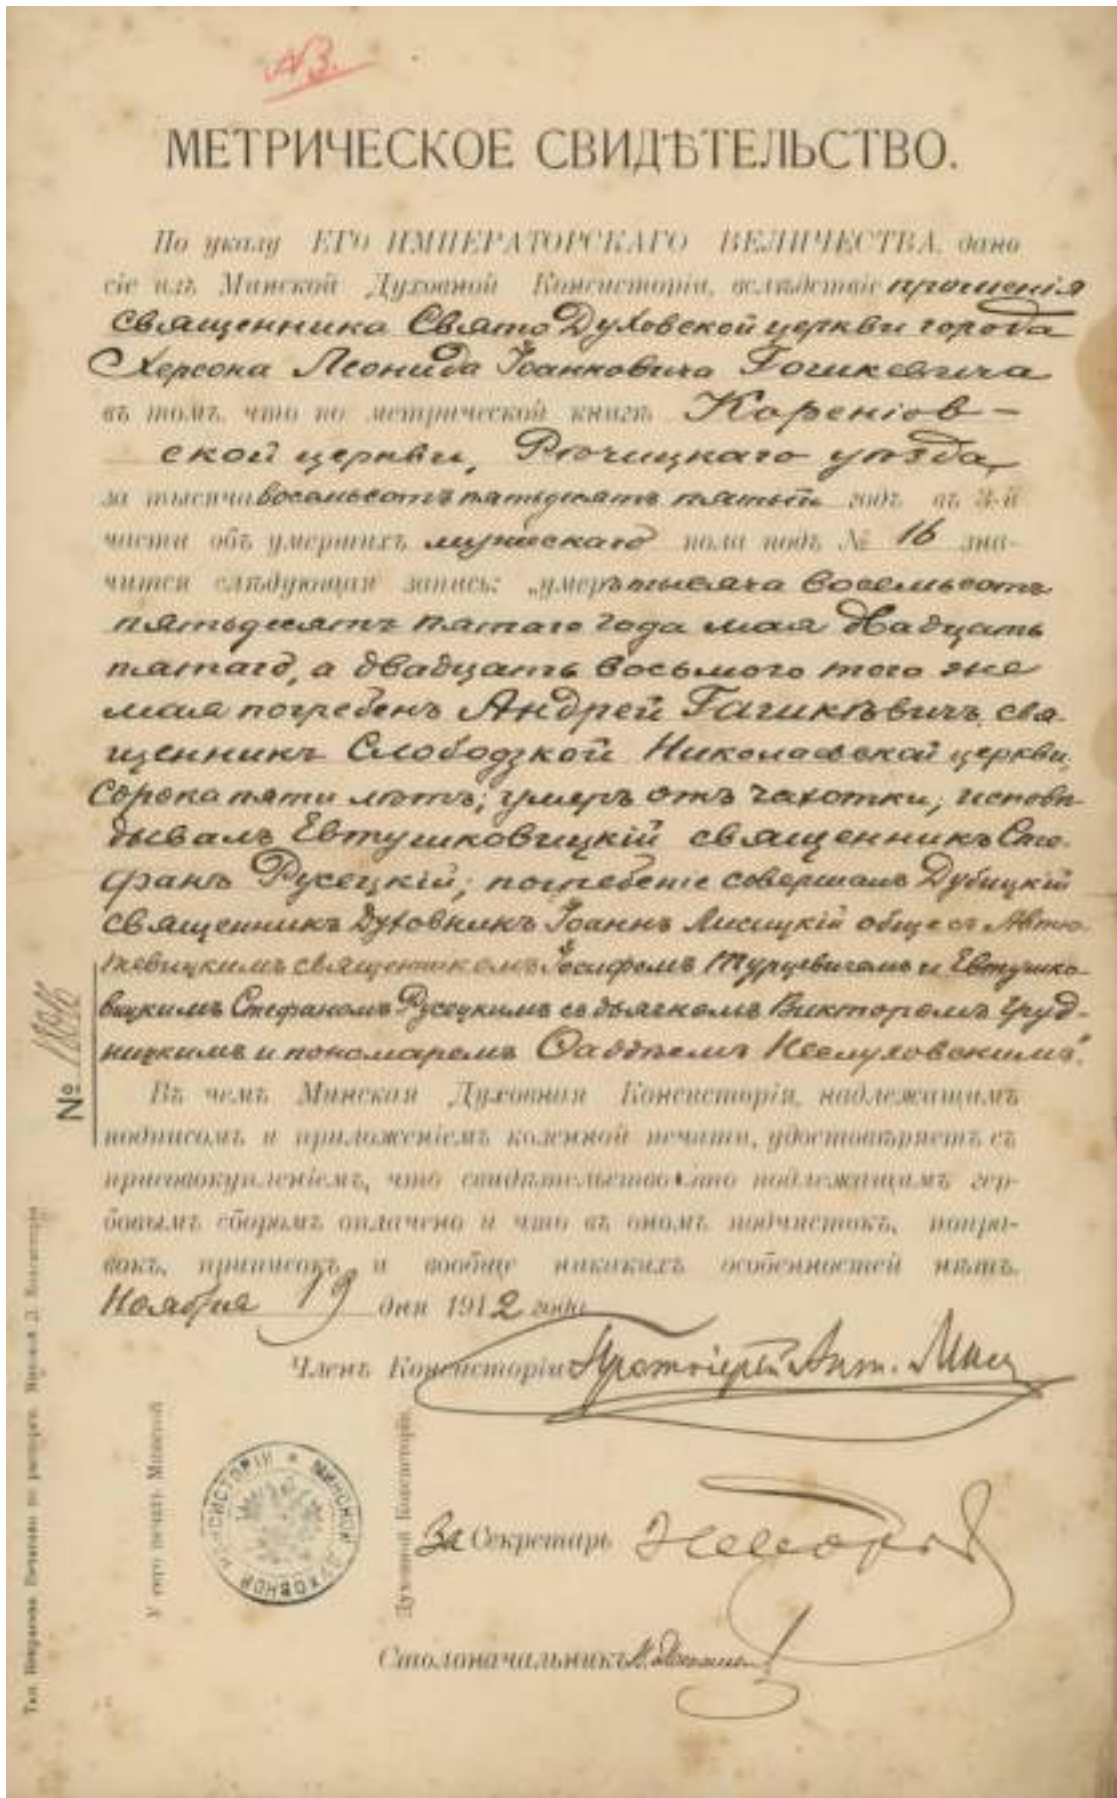 МЕТРИЧЕСКОЕ СВИДѢТЕЛЬСТВО.
По указу ЕГО ИМПЕРАТОРСКАГО ВЕЛИЧЕСТВА, дано
сіе изъ Минской Духовной Консисторіи, вслѣдствіе прошенія
священника Свято Духовской церкви города
Херсона Леонида Іоанновича Гошкевича
въ томъ, что по метрической книгѣ Кореніов-
ской церкви, Рѣчицкаго уѣзда,
за тысяча восемьсотъ пятьдесятъ пятый годъ въ 3-й
части объ умершихъ мужескаго пола подъ № 16 зна-
чится слѣдующая запись: „умеръ тысяча восемьсотъ
пятьдесятъ пятаго года мая двадцать
пятаго, а двадцать восьмого того же
мая погребенъ Андрей Гашкѣвичъ, свя-
щенникъ Слободзкой Николаевской церкви,
сорока пяти лѣтъ; умеръ отъ чахотки; исповѣ-
дывалъ Евтушковицкій священникъ Сте-
фанъ Русецкій; погребеніе совершалъ Дубицкій
священникъ духовникъ Іоаннъ Лисицкій обще съ Автю-
цевицкимъ священникомъ Іосифомъ Турцевичемъ и Евтушко-
вицкимъ Стефаномъ Русецкимъ съ дьячкомъ Викторомъ Груд-
ницкимъ и пономаремъ Ѳаддѣемъ".
Въ чемъ Минская Духовная Консисторія, надлежащимъ
подписомъ и приложеніемъ казенной печати, удостовѣряетъ съ
присовокупленіемъ, что свидѣтельство это надлежащимъ гер-
бовымъ сборомъ оплачено и что въ ономъ подчистокъ, попра-
вокъ, приписокъ и вообще никакихъ особенностей нѣтъ.
Ноября 19 дня 1912 года
Членъ Консисторіи Протоіерей Ант.
У сего печать Минской
Духовной Консисторіи.
МИНСКОЙ ДУХОВНОЙ КОНСИСТОРІИ
За Секретарь
Столоначальникъ
№